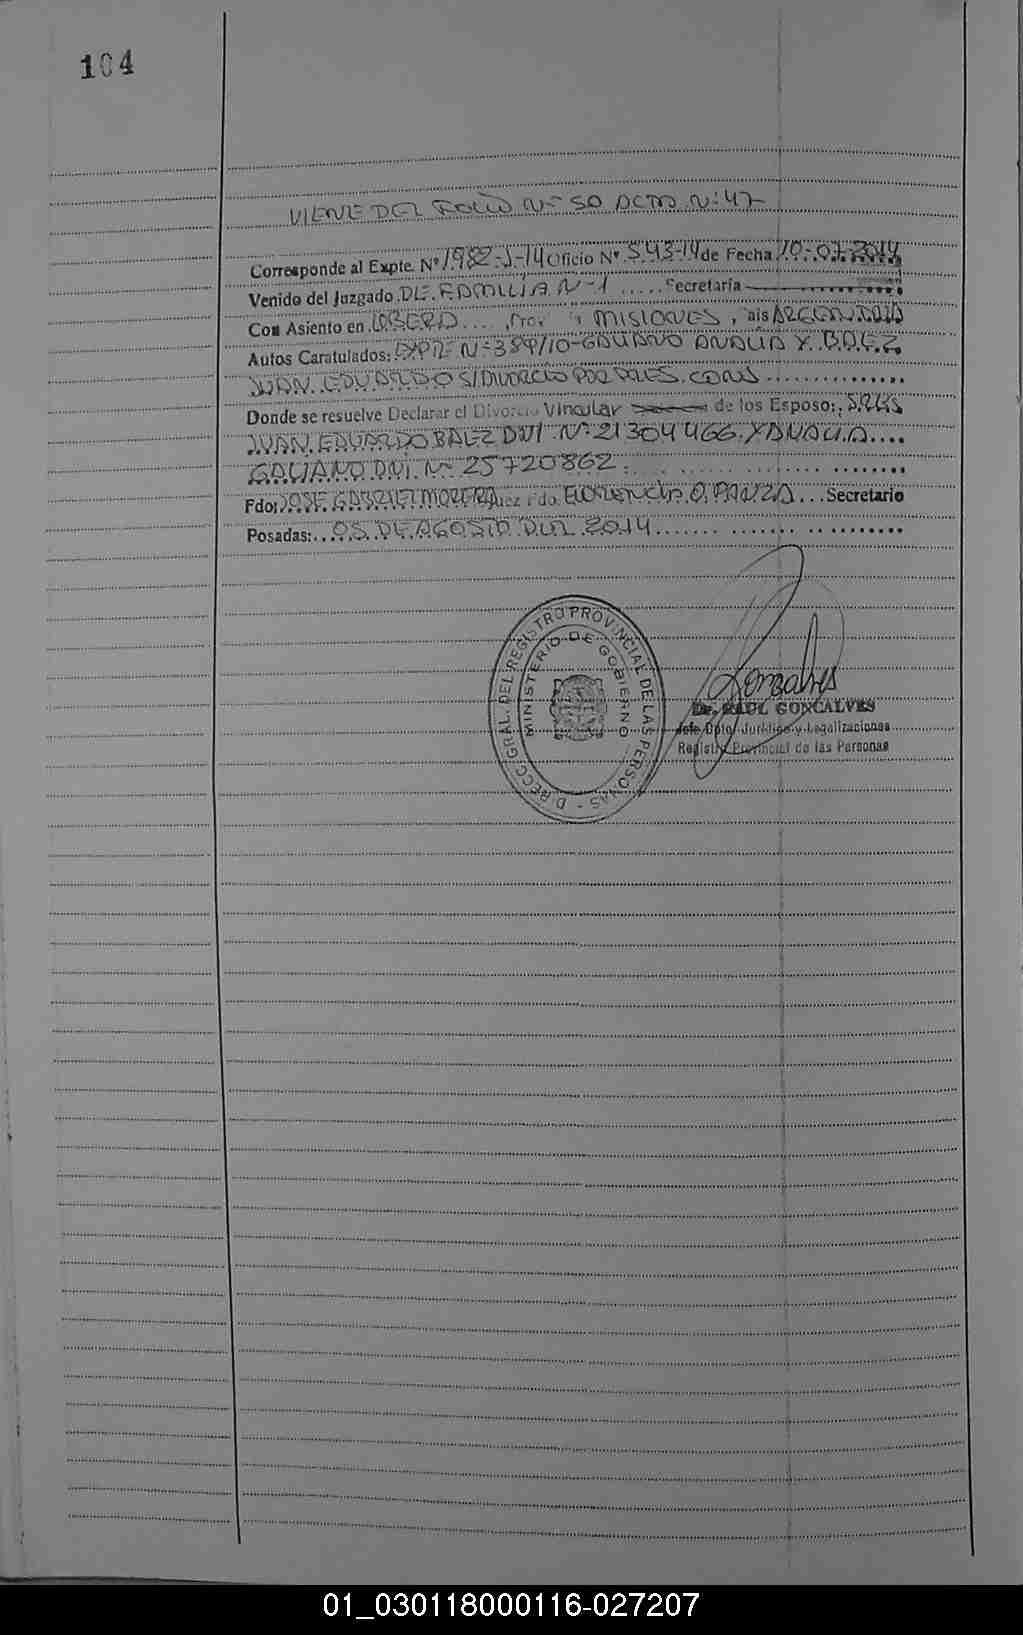 104
VIENE DEL FOLIO Nº 50 ACTA Nº: 47
Corresponde al Expte. Nº 1982-J-14 Oficio Nº 543-14 de Fecha 10-07-2014
Venido del Juzgado DE FAMILIA Nº 1 Secretaría
Con Asiento en OBERA Prov. MISIONES, ais ARGENTINA
Autos Caratulados: EXPTE Nº 389/10-GALIANO ANALIA Y BAEZ
JUAN EDUARDO S/ DIVORCIO POR PRES. CONJ
Donde se resuelve Declarar el Divorcio Vincular de los Esposo: SRES
JUAN EDUARDO BAEZ DNI Nº 21304466 Y ANALIA
GALIANO DNI Nº 25720862.
Fdo: JOSE GABRIEL MOREIRA Juez Fdo. O. PANZA Secretario
Posadas: 05 DE AGOSTO DEL 2014
DIRECC. GRAL. DEL REGISTRO PROVINCIAL DE LAS PERSONAS
MINISTERIO DE GOBIERNO
Gonzalves
Dr. RAUL GONCALVES
Jefe Dpto. Jurídico y Legalizaciones
Registro Provincial de las Personas
01_030118000116-027207